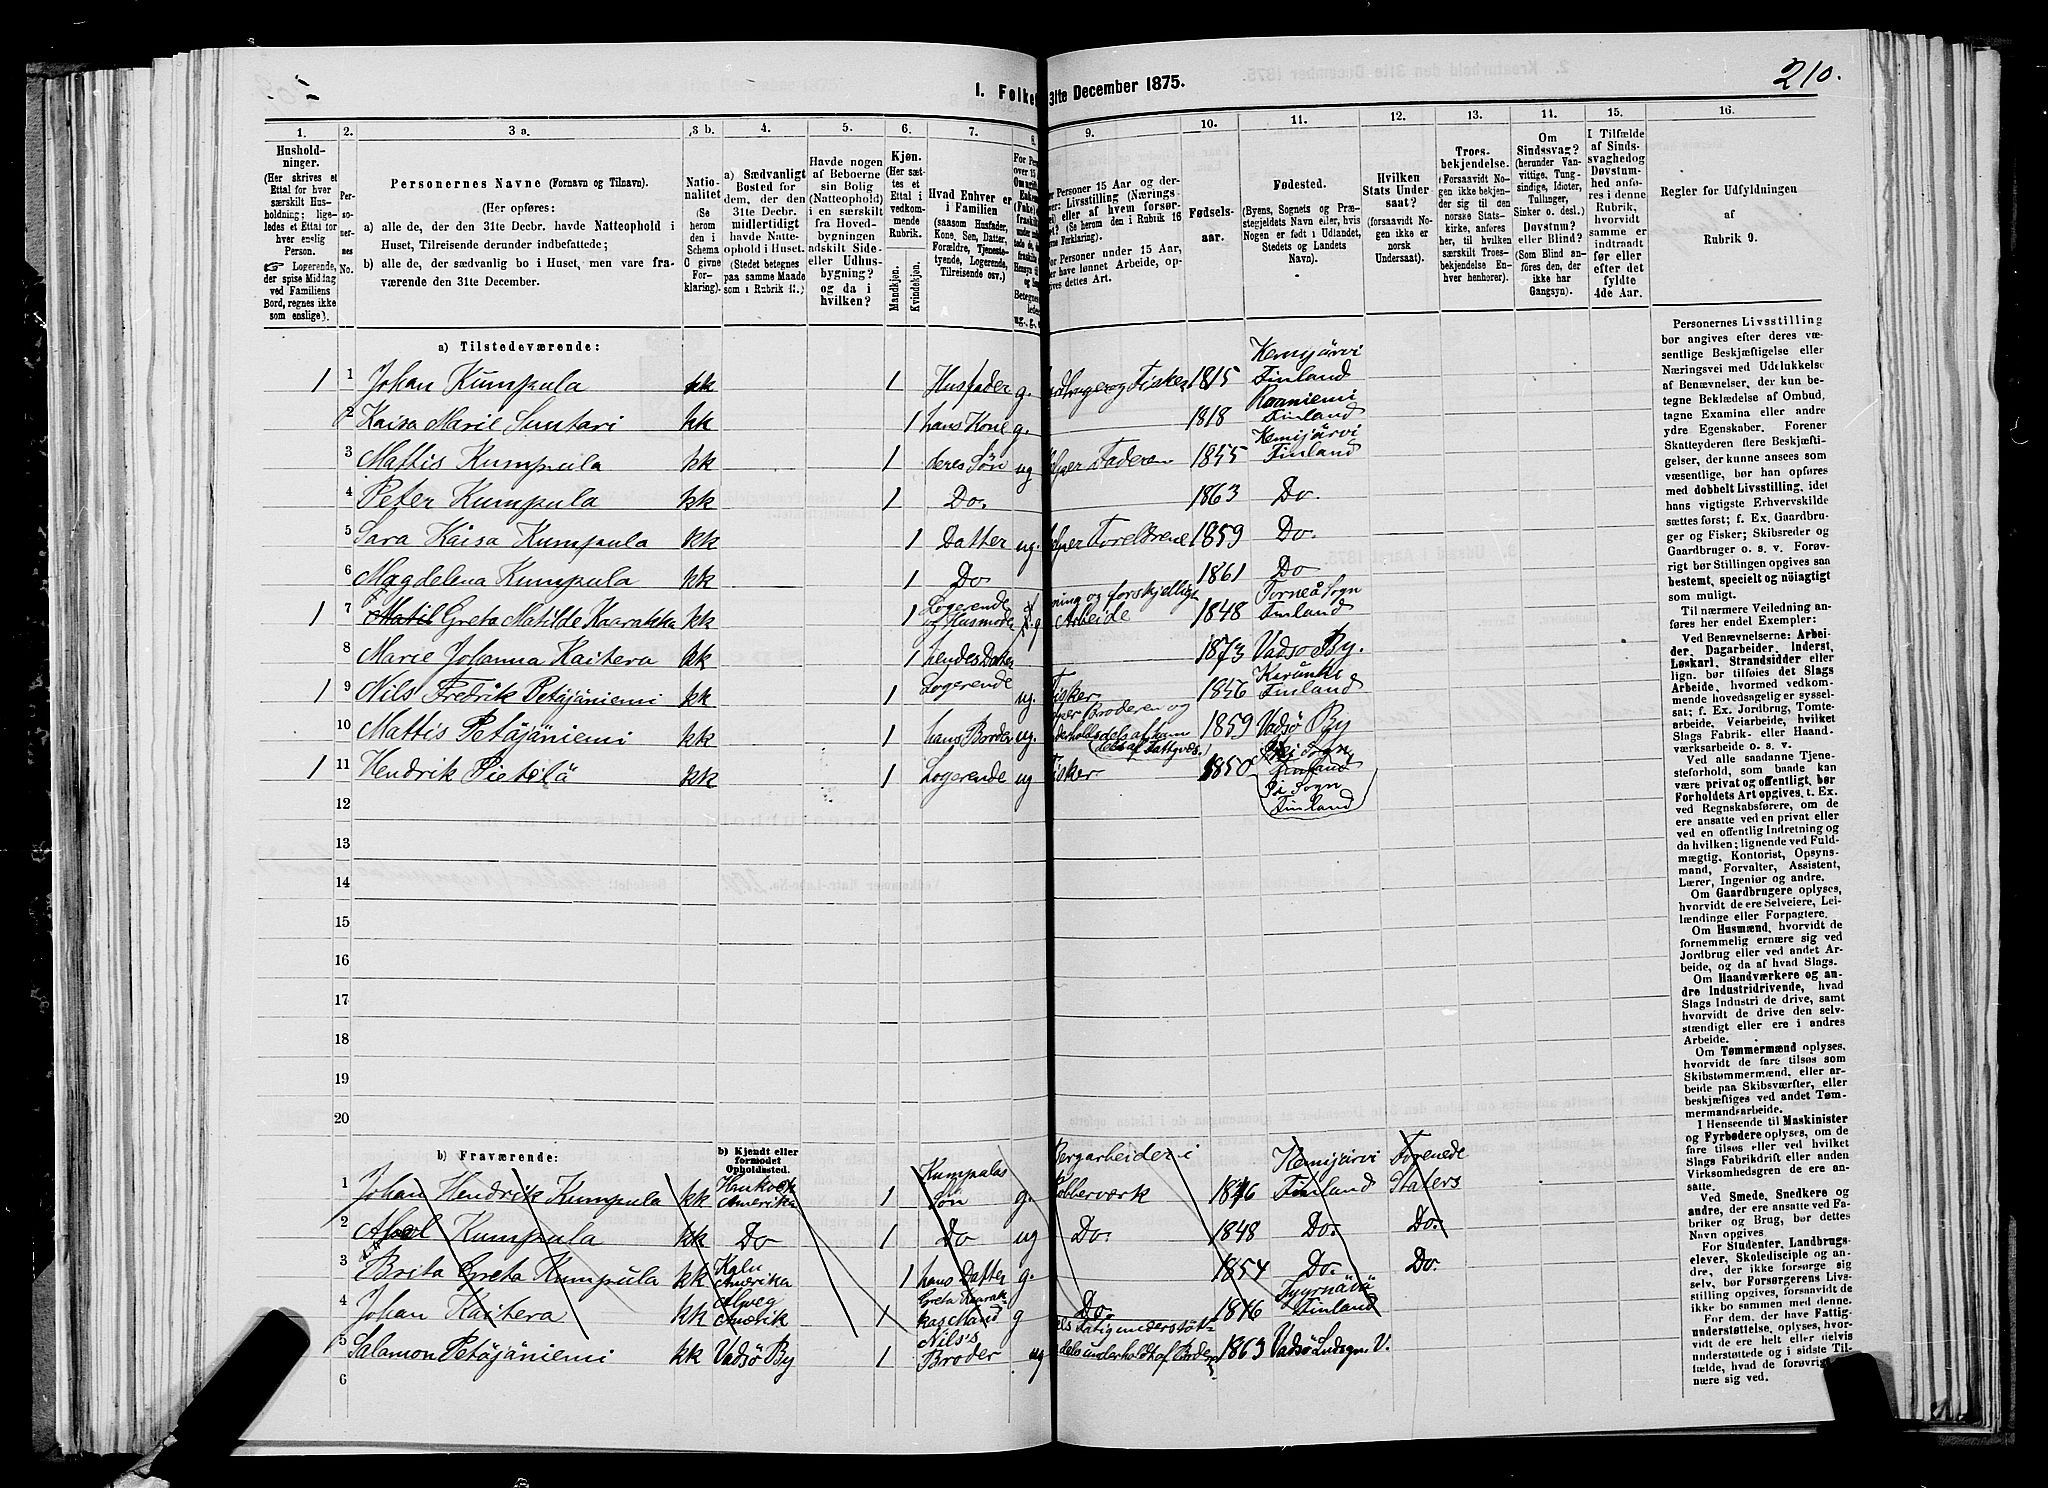 210.
I. Folke 31te December 1875.
1. 2. 3 a. 3 b. 4. 5. 6. 7. 8. 9. 10. 11. 12. 13. 14. 15. 16.
Hushold-
ninger.
(Her skrives et
Ettal for hver
særskilt Hus-
holdning; lige-
ledes et Ettal for
hver enslig
Person.
☞ Logerende,
der spise Middag
ved Familiens
Bord, regnes ikke
som enslige).
Per-
so-
ner-
nes
No.
Personernes Navne (Fornavn og Tilnavn).
(Her opføres:
a) alle de, der den 31te Decbr. havde Natteophold i
Huset, Tilreisende derunder indbefattede;
b) alle de, der sædvanlig bo i Huset, men vare fra-
værende den 31te December.
Natio-
nalitet
(Se
herom
den i
Schema
O givne
For-
klaring).
a) Sædvanligt
Bosted for
dem, der den
31te Decbr.
midlertidigt
havde Natte-
ophold i Huset.
(Stedet betegnes
paa samme Maade
som i Rubrik 11.)
Havde nogen
af Beboerne
sin Bolig
(Natteophold)
i en særskilt
fra Hoved-
bygningen
adskilt Side-
eller Udhus-
bygning?
og da i
hvilken?
Kjøn.
(Her sæt-
tes et
Ettal i
vedkom-
mende
Rubrik.
Mandkjøn.
Kvindekjøn.
Hvad Enhver er
i Familien
(saasom Husfader,
Kone, Søn, Datter,
Forældre, Tjeneste-
tyende, Logerende,
Tilreisende osv.)
Fødsels-
aar.
Fødested.
(Byens, Sognets og Præ-
stegjeldets Navn eller, hvis
Nogen er født i Udlandet,
Stedets og Landets
Navn).
Hvilken
Stats Under-
saat?
(forsaavidt No-
gen ikke er
norsk
Undersaat).
Troes-
bekjendelse.
(Forsaavidt No-
gen ikke bekjen-
der sig til den
norske Stats-
kirke, anføres
her, til hvilken
særskilt Troes-
bekjendelse En-
hver henhorer).
Om
Sindssvag?
(herunder Van-
vittige, Tung-
sindige, Idioter,
Tullinger,
Sinker o. desl.).
Døvstum?
eller Blind?
(Som Blind an-
føres den, der
ikke har
Gangsyn).
I Tilfælde
af Sinds-
svaghedog
Døvstum-
hed anfø-
res i denne
Rubrik,
hvorvidt
samme er
indtraadt
før eller
efter det
fyldte
4de Aar.
Regler for Udfyldningen
af
Rubrik 9.
a) Tilstedeværende:
1 1 Johan Kumpula kk 1 Husfader g. Fisker 1815 Kemijärvi Finland
2 Kaisa Marie Suntari kk 1 hans Kone g. 1818 Finland
3 Mattis Kumpula kk 1 deres Søn ug Faderen 1855 Kemijärvi Finland
4 Peter Kumpula kk 1 Do. 1863 Do.
5 Sara Kaisa Kumpula kk 1 Datter ug. Foreldrene 1859 Do.
6 Magdelena Kumpula kk 1 Do 1861 Do
1 7 Greta Matilde Kaarakka kk 1 Logerende og forskjelligt Arbeide 1848 Torneå Sogn Finland
8 Marie Johanna Kaitera kk 1 hendes Datter 1873 Vadsø By.
1 9 Nils Fredrik Petäjäniemi kk 1 Logerende ug. Fisker 1856 Finland
10 Mattis Petäjäniemi kk 1 hans Broder ug. Broderen og 1859 Vadsø By
1 11 Hendrik Pietilä kk 1 Logerende ug Fisker 1850 Sogn Finland
Sogn
Finland
12
13
14
15
16
17
18
19
20
b) Fraværende:
b) Kjendt eller
formodet
Opholdssted.
1 Johan Hendrik Kumpula kk Amerika 1 Kumpulas Søn g. Bergarbeider i Kobberværk 1846 Kemijärvi Finland Forenede Staters
2 Kumpula kk Do 1 Do ug Do. 1848 Do. Do.
3 Brita Greta Kumpula kk Amerika 1 hans Datter g. 1854 Do. Do.
4 Johan Kaitera kk 1 Greta Mand g Do. 1846 Tyrnävä Finland
5 Salamon Petäjäniemi kk Vadsø By 1 Nils's Broder ug 1863 Vadsø Lndsgn. V.
6
Personernes Livsstilling
bør angives efter deres væ-
sentlige Beskjæftigelse eller
Næringsvei med Udelukkelse
af Benævnelser, der kun be-
tegne Beklædelse af Ombud,
tagne Examina eller andre
ydre Egenskaber. Forener
Skatteyderen flere Beskjæfti-
gelser, der kunne ansees som
væsentlige, bør han opføres
med dobbelt Livsstilling, idet
hans vigtigste Erhvervskilde
sættes først; f. Ex. Gaardbru-
ger og Fisker; Skibsreder og
Gaardbruger o. s. v. Forøv-
rigt bør Stillingen opgives saa
bestemt, specielt og nöiagtigt
som muligt.
Til nærmere Veiledning an-
føres her endel Exempler:
Ved Benævnelserne: Arbei-
der, Dagarbeider, Inderst,
Løskarl, Strandsidder eller
lign. bør tilføies det Slags
Arbeide, hvormed vedkom-
mende hovedsagelig er syssel-
sat; f. Ex. Jordbrug, Tomte-
arbeide, Veiarbeide, hvilket
Slags Fabrik- eller Haand-
værksarbeide o. s. v.
Ved alle saadanne Tjene-
steforhold, som baade kan
være privat og offentligt, bør
Forholdets Art opgives, t. Ex.
ved Regnskabsførere, om de
ere ansatte ved en privat eller
ved en offentlig Indretning og
da hvilken; lignende ved Fuld-
mægtig, Kontorist, Opsyns-
mand, Forvalter, Assistent,
Lærer, Ingeniør og andre.
Om Gaardbrugere oplyses,
hvorvidt de ere Selveiere, Lei-
lændinge eller Forpagtere.
Om Husmænd, hvorvidt de
fornemmelig ernære sig ved
Jordbrug eller ved andet Ar-
beide, og da af hvad Slags.
Om Haandværkere og an-
dre Industridrivende, hvad
Slags Industri de drive, samt
hvorvidt de drive den selv-
stændigt eller ere i andres
Arbeide.
Om Tømmermænd oplyses,
hvorvidt de fare tilsøs som
Skibstømmermænd, eller ar-
beide paa Skibsværfter, eller
beskjæftiges ved andet Tøm-
mermandsarbeide.
I Henseende til Maskinister
og Fyrbødere oplyses, om de
fare tilsøs eller ved hvilket
Slags Fabrikdrift eller anden
Virksomhedsgren de ere an-
satte.
Ved Smede, Snedkere og
andre, der ere ansatte ved Fa-
briker og Brug, bør dettes
Navn opgives.
For Studenter, Landbrugs-
elever, Skoledisciple og an-
dre, der ikke forsørge sig
selv, bør Forsørgerens Livs-
stilling opgives, forsaavidt de
ikke bo sammen med denne.
For dem, der have Fattig-
understøttelse, oplyses, hvor-
vidt de ere helt eller delvis
understøttede og i sidste Til-
fælde, hvad de forøvrigt er-
nære sig ved.